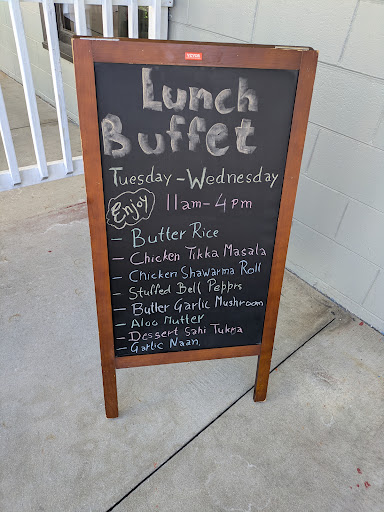 Lunch
Buffet
Tuesday - Wednesday
Enjoy 11am - 4pm
- Butter Rice
- Chicken Tikka Masala
- Chicken Shawarma Roll
- Stuffed Bell Pepprs
- Butter Garlic Mushroom
- Aloo Mutter
- Dessert Sahi Tukra
- Garlic Naan